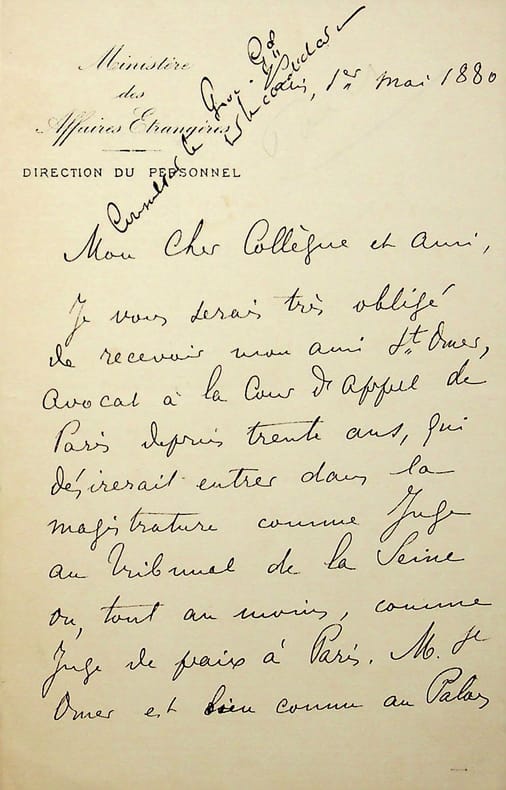 Ministère
des
Affaires Etrangères
DIRECTION DU PERSONNEL
Consulter le Proc. Gal
Paris, 1er Mai 1880
Mon Cher Collègue et Ami,
Je vous serais très obligé
de recevoir mon ami St Omer,
Avocat à la Cour d'Appel de
Paris depuis trente ans, qui
désirerait entrer dans la
magistrature comme Juge
au Tribunal de la Seine
ou, tout au moins, comme
Juge de paix à Paris. M. St
Omer est bien connu au Palais